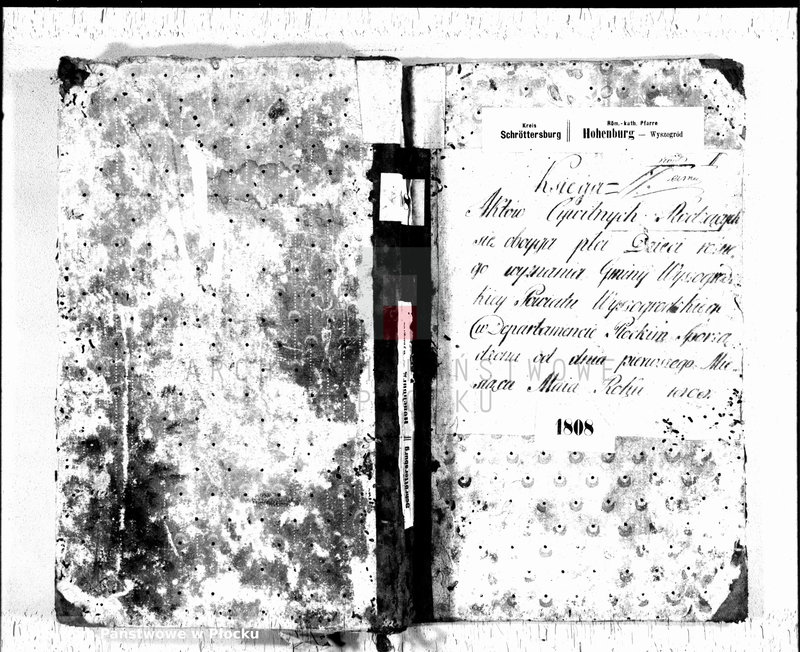 Kreis
Schröttersburg
Röm.-kath. Pfarre
Hohenburg — Wyszegród
Księga
Aktów Cywilnych Rodzących
się oboyga płci Dzieci różne
go wyznania Gminy Wyszogrodz
kiey Powiatu Wyszogrodzkiego
w Departamencie Płockim Sporzą
dzona od dnia pierwszego Mie
siąca Maia Roku 1808.
1808
Schröttersburg || Hohenburg
ARCHIWUM PAŃSTWOWE
W PŁOCKU
Państwowe w Płocku